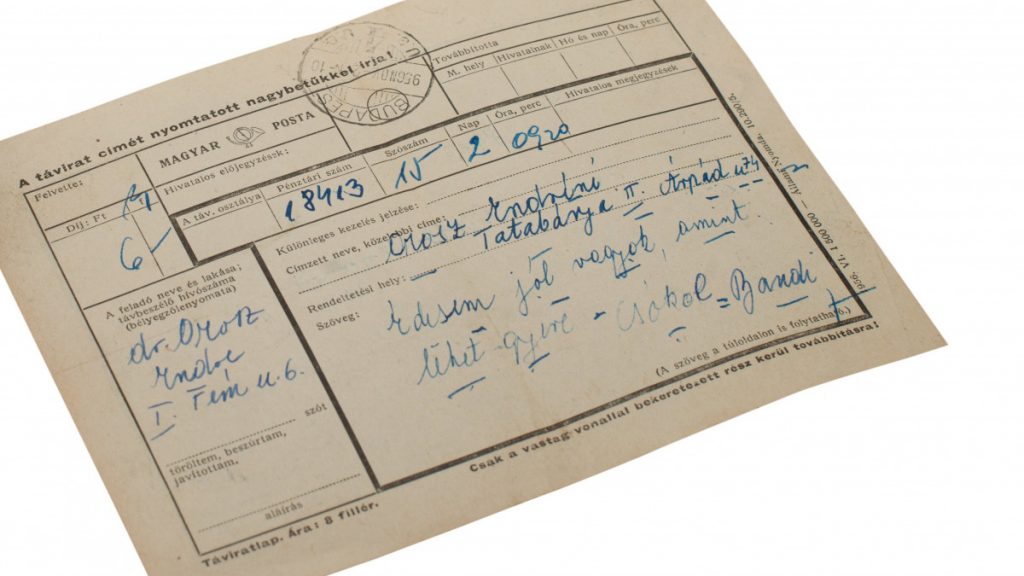 A távirat címét nyomtatott nagybetűkkel írja!
Felvette:
Díj: Ft
6/-
MAGYAR POSTA
Hivatalos előjegyzések:
Továbbította
M. hely Hivatalnak Hó és nap Óra, perc
A táv. osztálya
Pénztári szám Szószám Nap Óra, perc Hivatalos megjegyzések
18413 15 2 0920
BUDAPES
Különleges kezelés jelzése:
Címzett neve, közelebbi címe:
Orosz Endréné
Tatabánya II. Árpád u 74
Rendeltetési hely:
Szöveg:
Édesem jól vagyok, amint
lehet gyere - Csókol = Bandi
(A szöveg a túloldalon is folytatható.)
A feladó neve és lakása;
távbeszélő hívószáma
(bélyegzőlenyomata)
dr. Orosz
Endre
I. Fém u. 6.
szót
töröltem, beszúrtam,
javítottam.
aláírás
Csak a vastag vonallal bekeretezett rész kerül továbbításra;
Táviratlap. Ára: 8 fillér.
1956. VI. 1 500 000 — Állami Nyomda, 10.200/5.